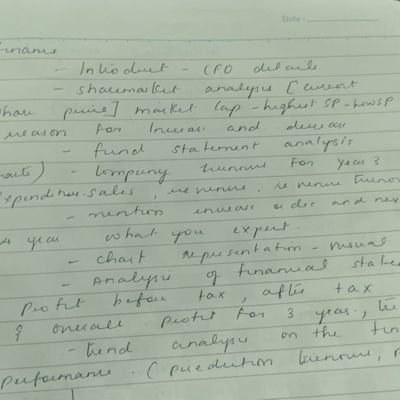 Date :
Finance
- Introduct - CFO details
- sharemarket analysis [current
share price] market cap - highest SP - low SP
reason for Increase and decrease
- fund statement analysis
- Company turnover for year 3
Expenditure. sales, revenue, revenue turnover
- mention increase & dec and next
4 year what you expect.
- chart representation - visual
- Analysis of financial state
Profit before tax, after tax
& overall profit for 3 year,
- trend analysis on the fin
performance. (prediction turnover,